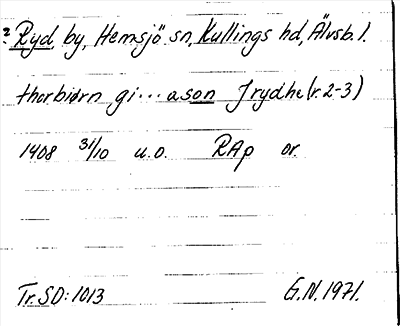 ? Ryd by, Hemsjö sn, Kullings hd, Älvsb. l.
thorbiørn gi...ason J rydhe (r. 2-3)
1408 31/10 u.o. RAp or.
Tr. SD: 1013 G.N. 1971.